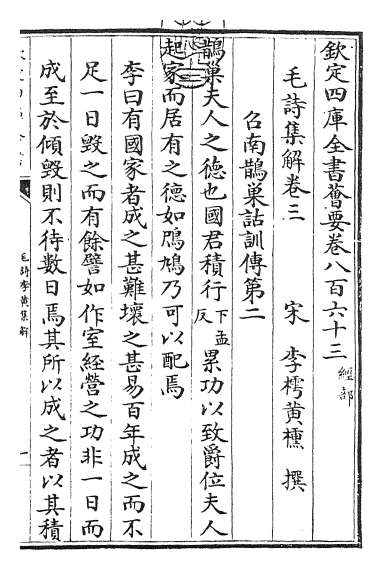 欽定四庫全書薈要卷八百六十三 經部
毛詩集解卷三
宋 李樗黄櫄 撰
召南鵲巢詁訓傳第二
鵲巢夫人之德也國君積行下孟反累功以致爵位夫人
起家而居有之德如鳲鳩乃可以配焉
李曰有國家者成之甚難壞之甚易百年成之而不
足一日毁之而有餘譬如作室經營之功非一日而
成至於傾毁則不待數日焉其所以成之者以其積
毛詩李黄集解
一